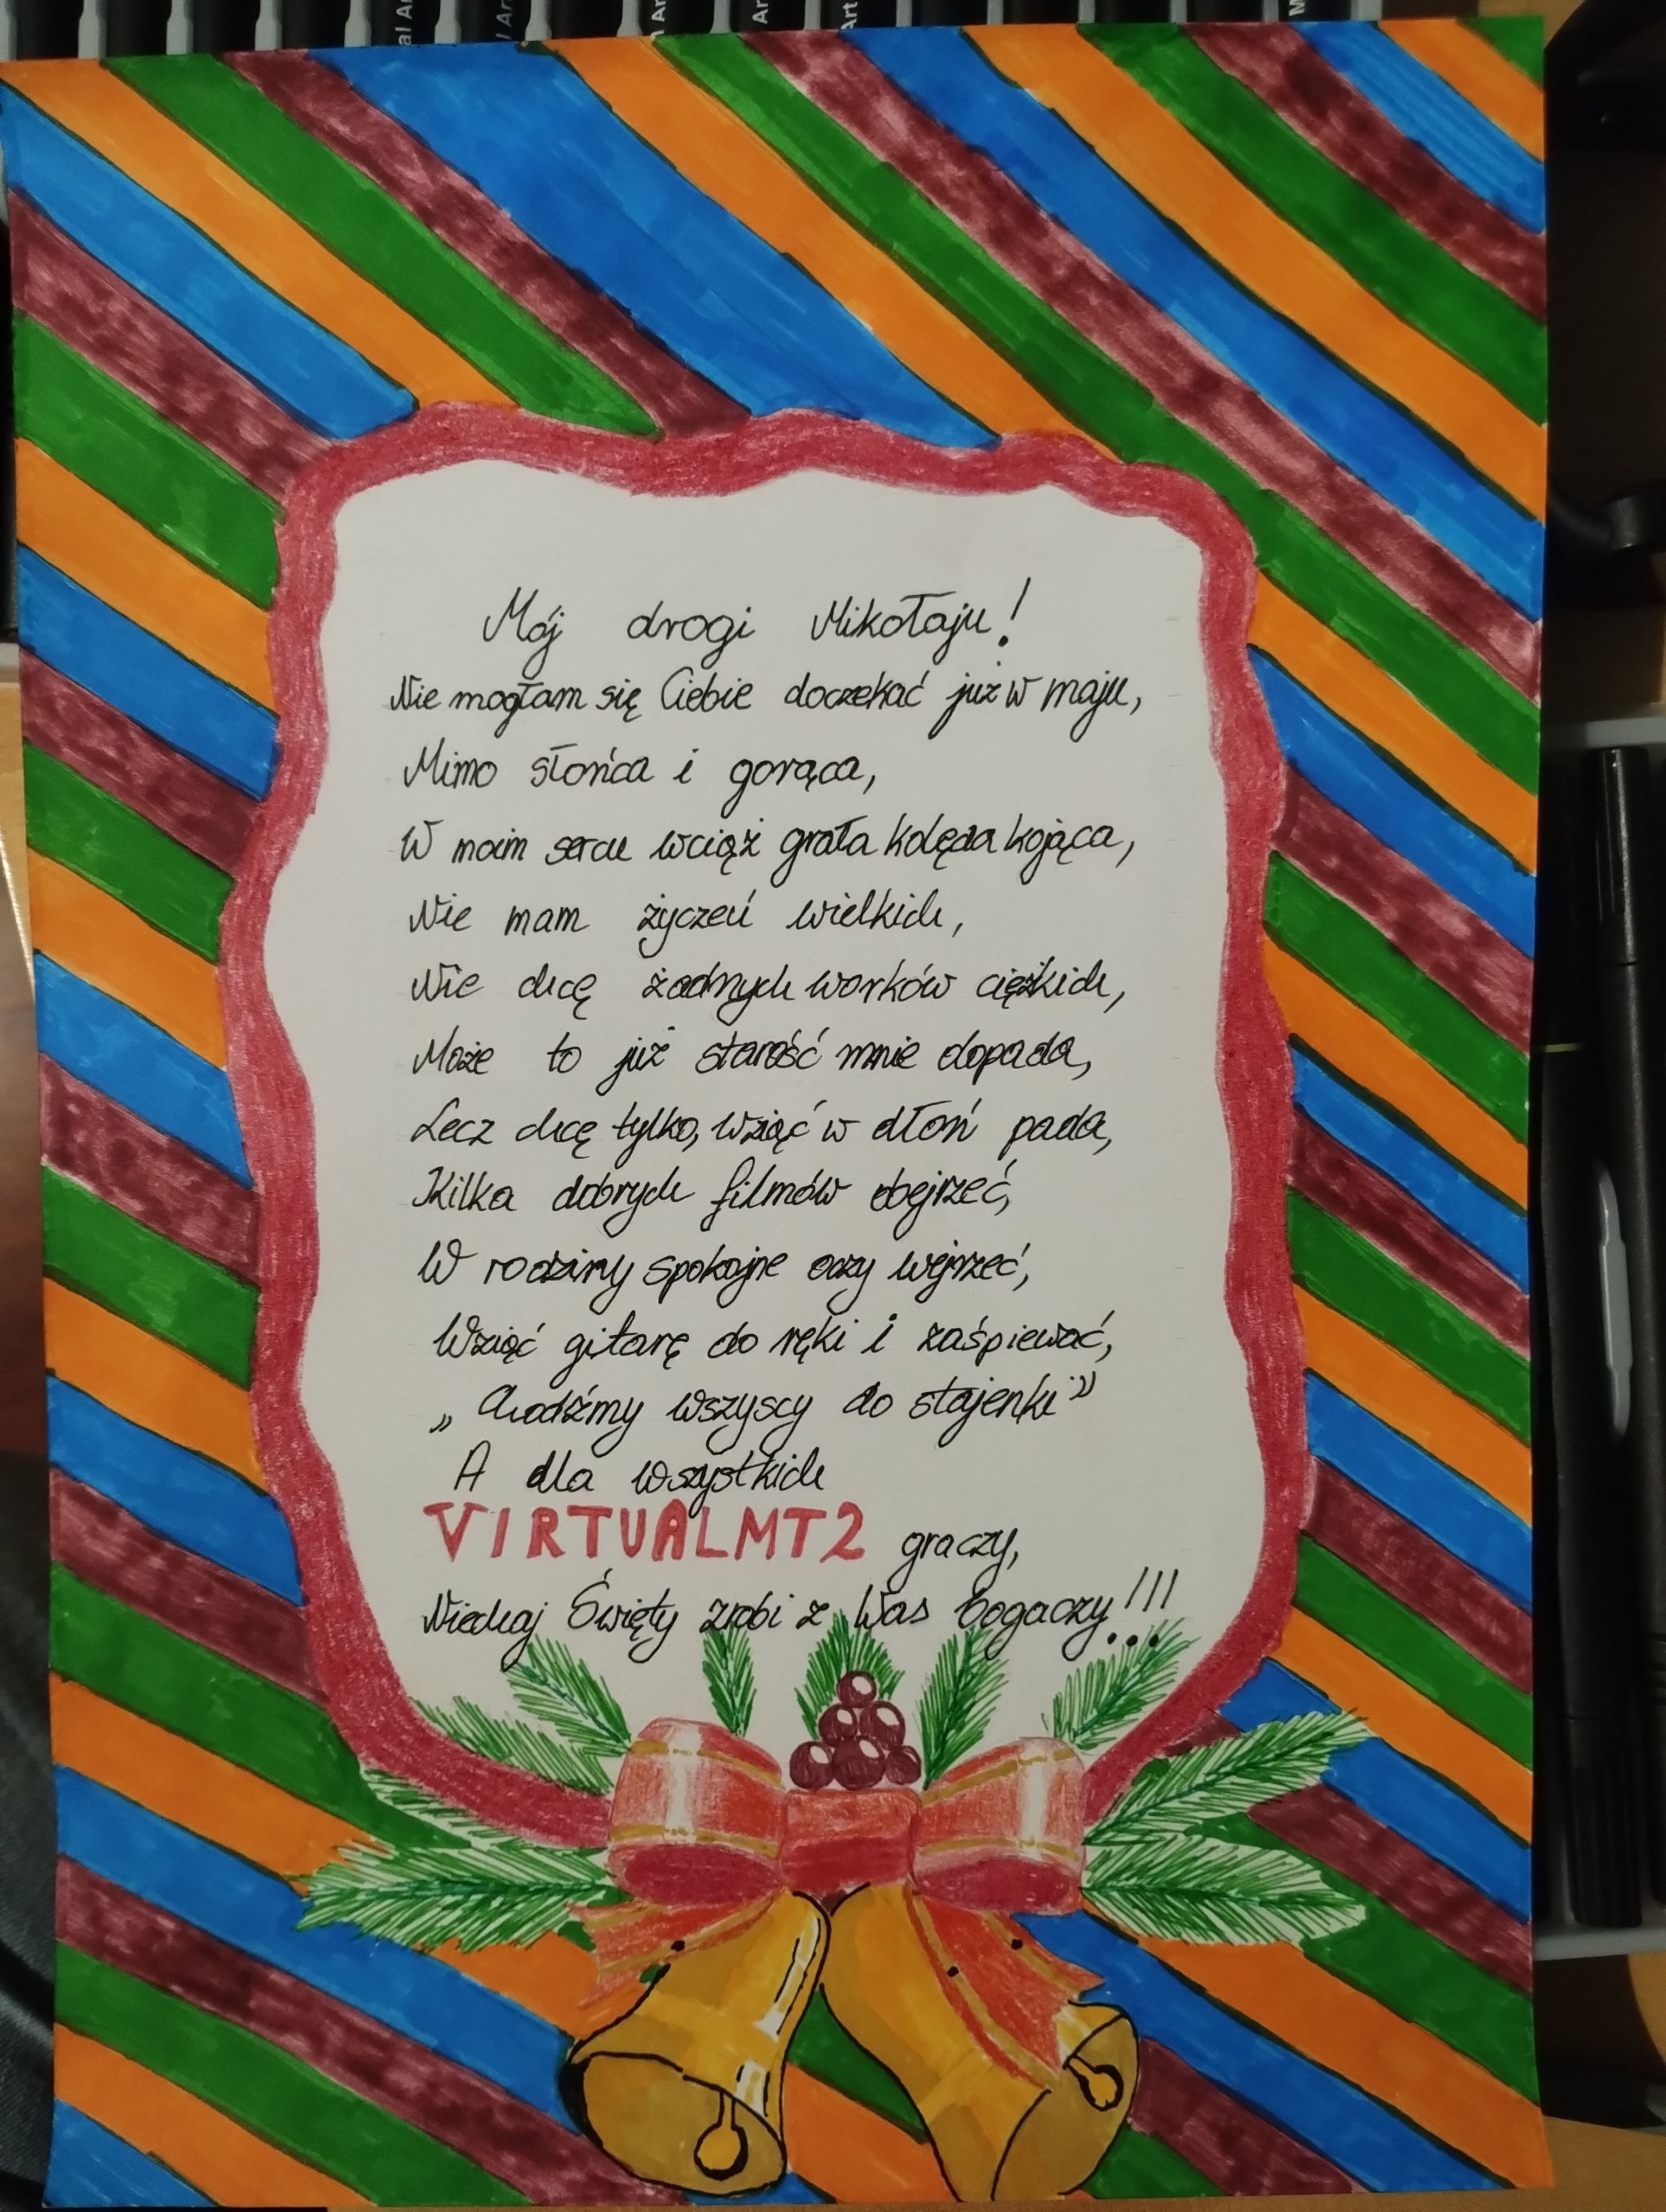 al Ar
l Ar
n Ar
Ar
Art
M
Mój drogi Mikołaju!
Nie mogłam się Ciebie doczekać już w maju,
Mimo słońca i gorąca,
W moim sercu wciąż grała kolęda kojąca,
Nie mam życzeń wielkich,
Nie chcę żadnych worków ciężkich,
Może to już starość mnie dopada,
Lecz chcę tylko, wziąć w dłoń pada,
Kilka dobrych filmów obejrzeć,
W rodziny spokojne oczy wejrzeć,
Wziąć gitarę do ręki i zaśpiewać,
„Chodźmy wszyscy do stajenki"
A dla wszystkich
VIRTUALMT2 graczy,
Niechaj Święty zrobi z Was bogaczy!!!